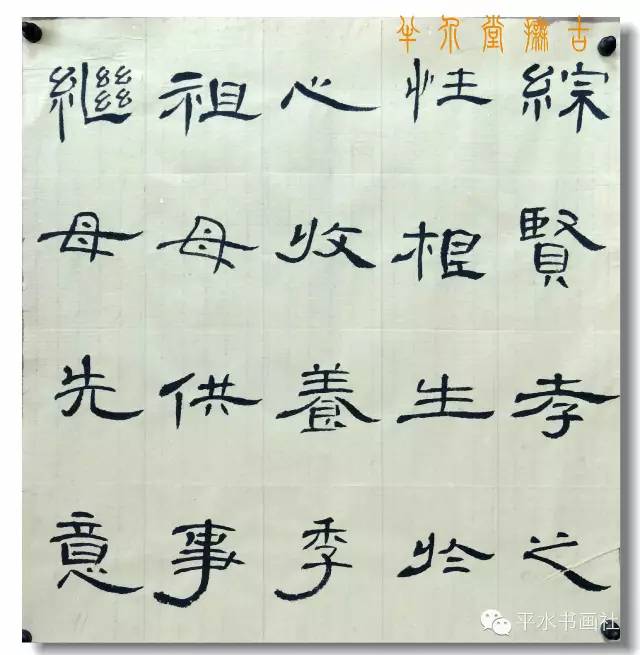 堂古
綜賢孝之
性根生於
心收養季
祖母供事
繼母先意
平水书画社